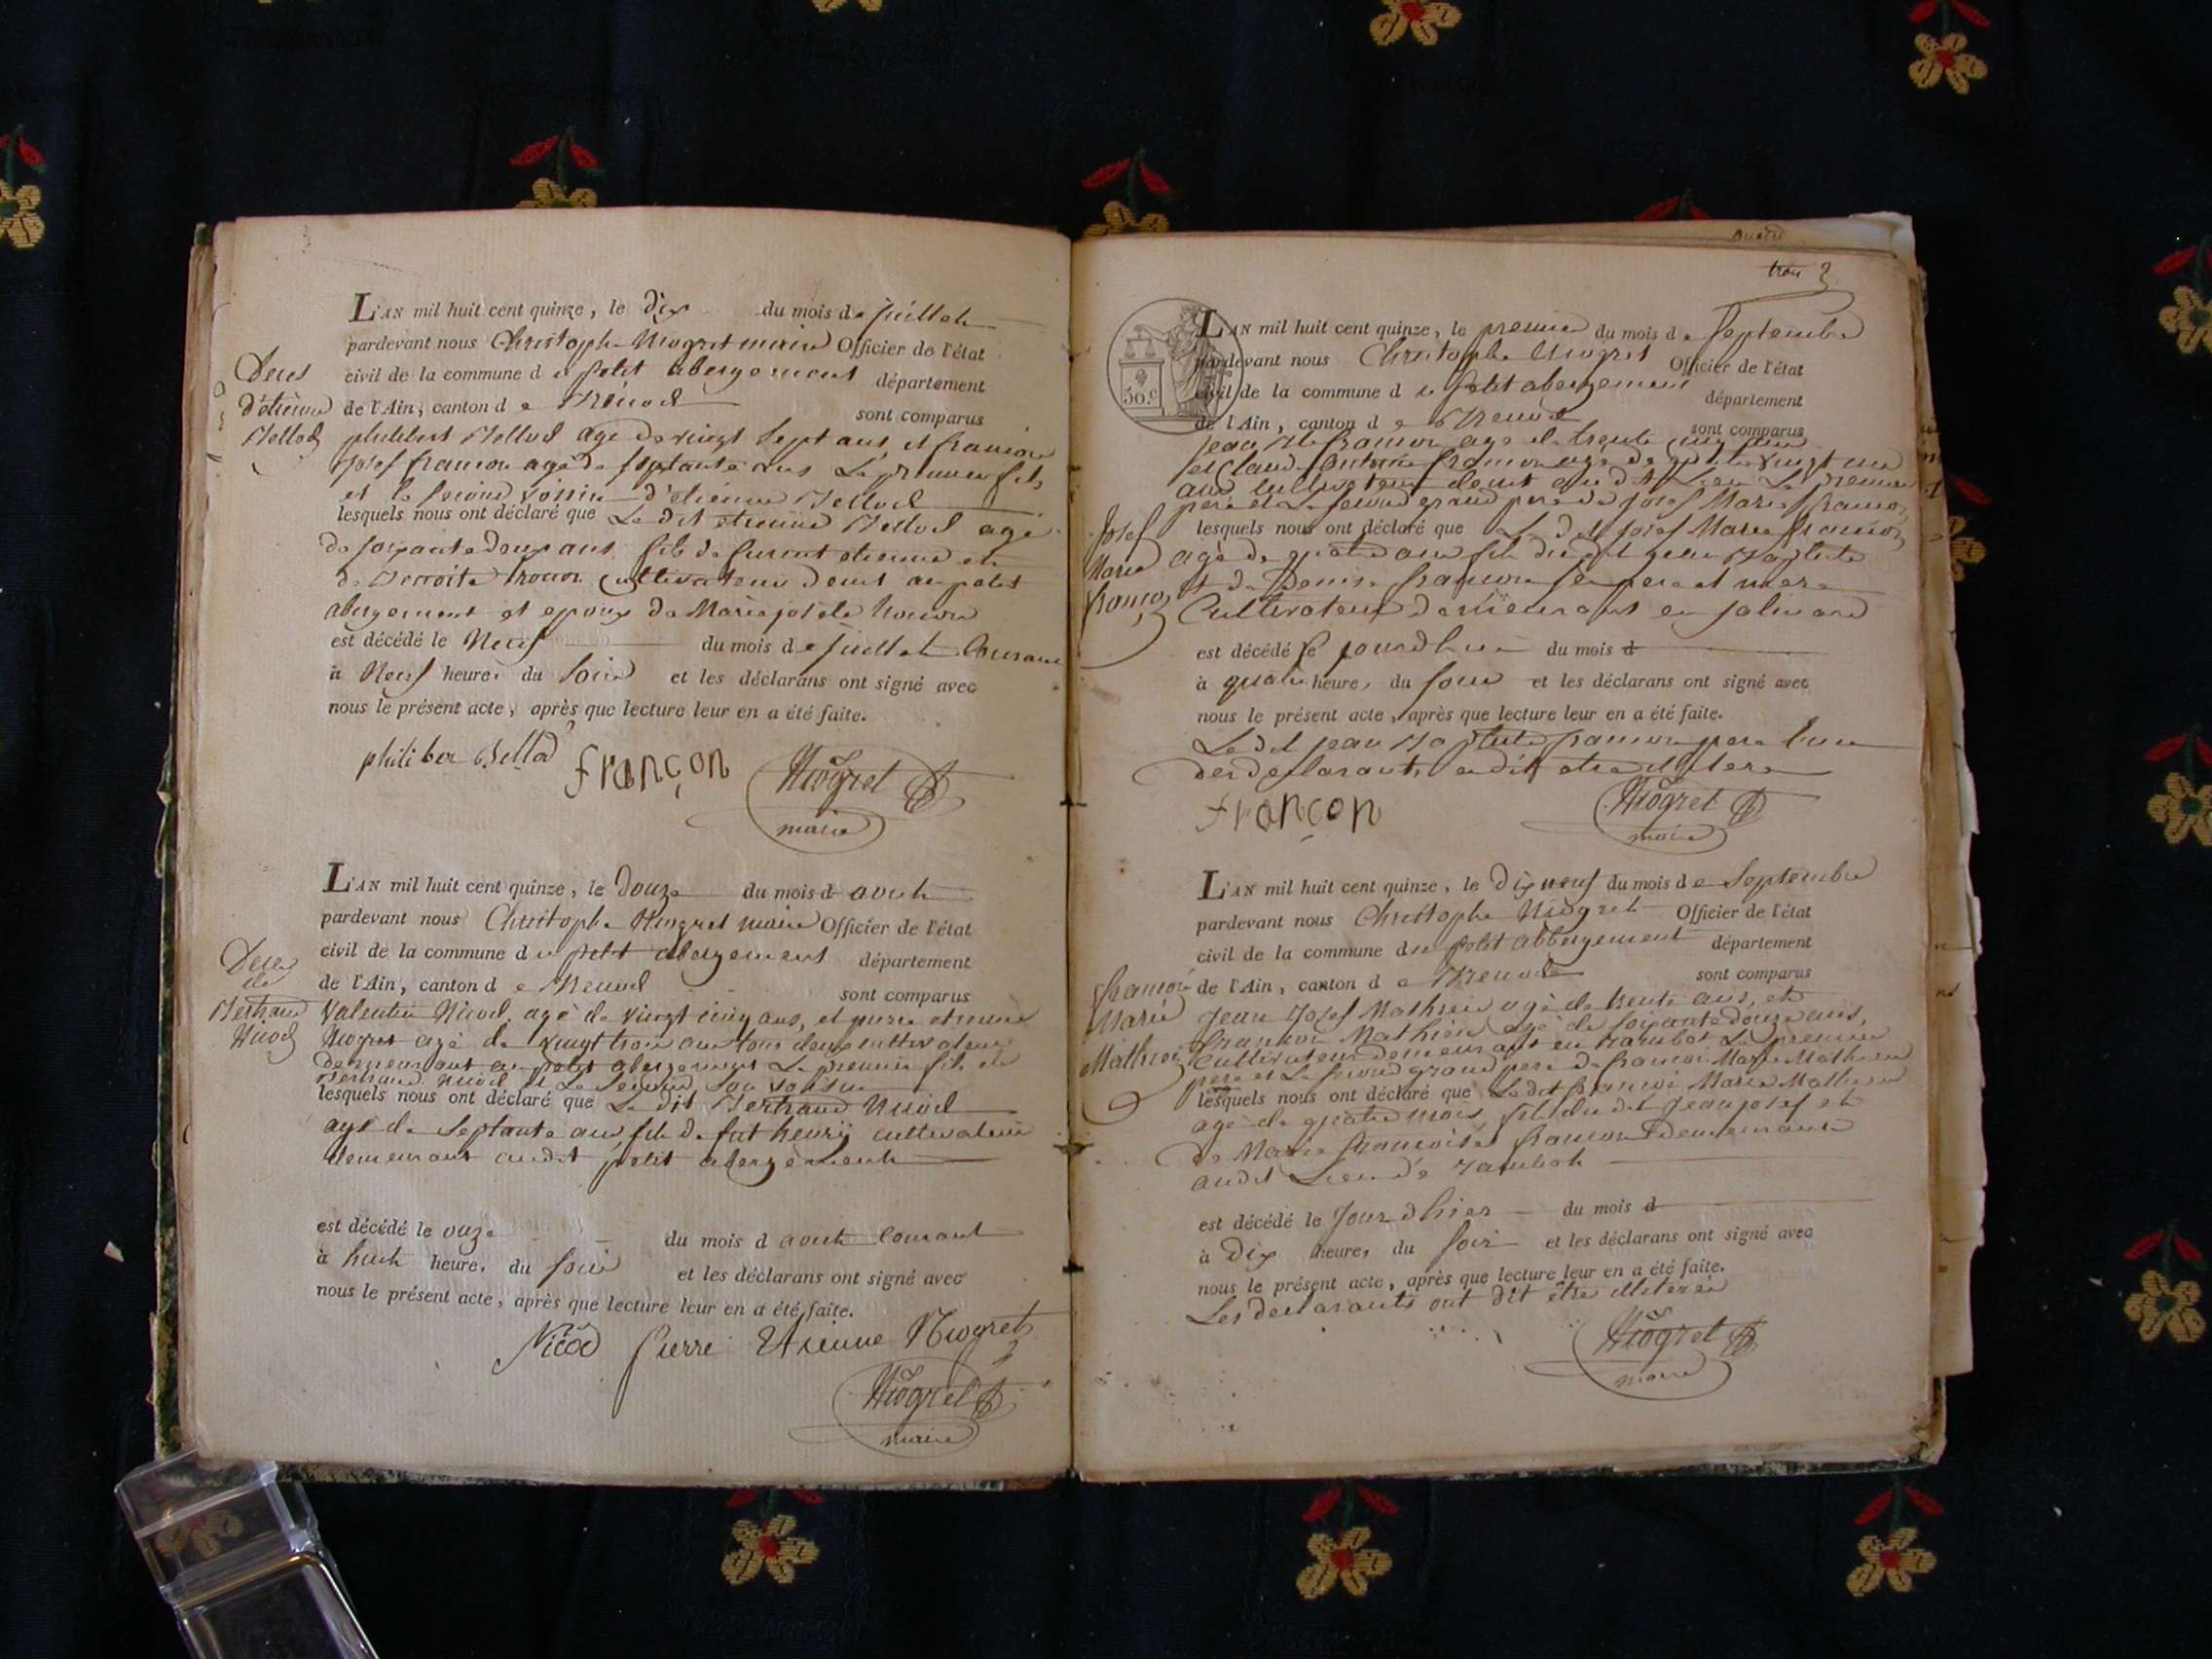 L'AN mil huit cent quinze, le dix du mois de juillet
pardevant nous Christophe Niogret maire Officier de l'état
civil de la commune du petit abergement département
de l'Ain, canton de Brénod
sont comparus
Deces
d'étienne
Bellod
philibert Bellod agé de vingt Sept ans, et francois
Josef francon agé de septante ans Le premier fils
et le second voisin d'étienne Bellod
lesquels nous ont déclaré que Le dit etienne Bellod agé
de soixante douze ans fils de furent etienne et
de Benoite cultivateur demt au petit
abergement et epoux de Marie josete
est décédé le Neuf du mois de juillet Courant
à Neuf heures du Soir et les déclarans ont signé avec
nous le présent acte, après que lecture leur en a été faite.
philiber Bellod françon Niogret
maire
L'AN mil huit cent quinze, le Douze du mois d aout
pardevant nous Christophe Niogret maire Officier de l'état
civil de la commune du petit abergement département
de l'Ain, canton de Brenod
sont comparus
Deces
de
Bertrand
Nicod
Valentin Nicod, agé de vingt cinq ans, et pierre etienne
Niogret agé de vingt trois ans tous deux cultivateurs
demeurant au petit abergement Le premier fils de
Bertrand Nicod et Le Second Son voisin
lesquels nous ont déclaré que Le dit Bertrand Nicod
agé de Septante ans fils de fut henry cultivateur
demeurant audit petit abergement
est décédé le onze du mois d aout Courant
à huit heures du soir et les déclarans ont signé avec
nous le présent acte, après que lecture leur en a été faite.
Nicod Pierre Etienne Niogret
Niogret
maire
trois 3
50.c
L'AN mil huit cent quinze, le premier du mois de Septembre
pardevant nous Christophe Niogret Officier de l'état
civil de la commune du Petit abergement département
de l'Ain, canton de Brenod
sont comparus
Josef
Marie
francon
jean Bte francon agé de trente cinq ans
et Claude Antoine francon agé de quatre vingt un
ans cultivateurs demt au dit Lieu Le premier
père et Le second grand pere de Josef Marie francon
lesquels nous ont déclaré que Le dit Josef Marie francon
agé de quatre ans fils du dit jean Baptiste
et de Denise francon ses pere et mere
Cultivateurs demeurant en jalinard
est décédé le jourdhui du mois d
à quatre heures du soir et les déclarans ont signé avec
nous le présent acte, après que lecture leur en a été faite.
Le dit jean Baptiste francon pere l'un
des declarants a dit etre illitere
françon Niogret
maire
L'AN mil huit cent quinze, le Dix neuf du mois de Septembre
pardevant nous Christophe Niogret Officier de l'état
civil de la commune du petit abbergement département
de l'Ain, canton de Brenod
sont comparus
francois
Marie
Mathieu
Jean Josef Mathieu agé de trente ans, et
francois Mathieu agé de soixante douze ans,
Cultivateurs demeurant en rambot Le premier
pere et Le second grand pere de francois Marie Mathieu
lesquels nous ont déclaré que Le dit francois Marie Mathieu
agé de quatre mois, fils du dit Jean josef et
de Marie francoise francon Demeurant
audit Lieu de rambot
est décédé le Jour d'hier du mois d
à Dix heures du soir et les déclarans ont signé avec
nous le présent acte, après que lecture leur en a été faite.
Les declarants ont dit etre illiterés
Niogret
maire